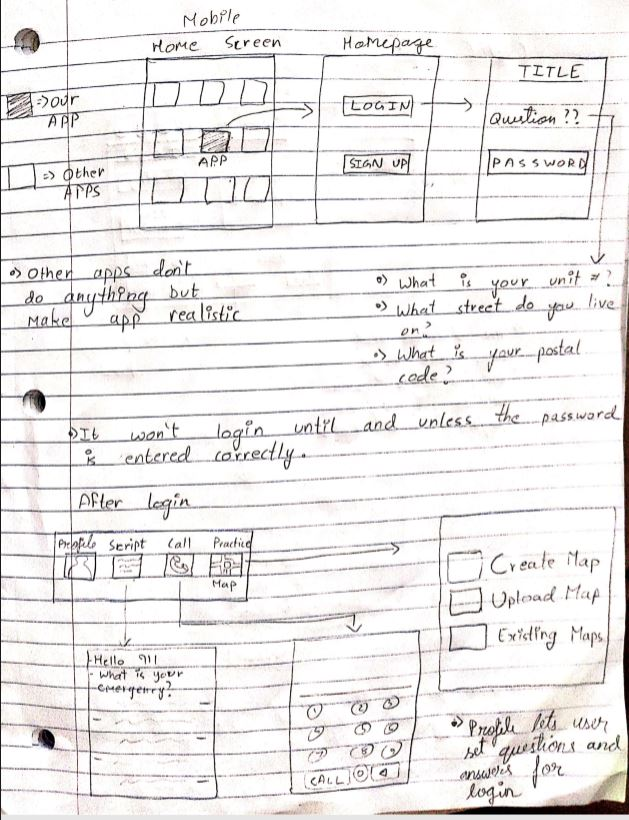 Mobile
Home Screen
Homepage
TITLE
⇒ our
APP
LOGIN
Question ??
APP
SIGN UP
PASSWORD
⇒ Other
APPS
Other apps don't
do anything but
Make app realistic
What is your unit #?
What street do you live
on?
What is your postal
code?
It won't login until and unless the password
is entered correctly.
After login
Profile Script Call Practice
Map
Create Map
Upload Map
Existing Maps
Hello 911
- What is your
emergency?
1 2 3
CALL 0
Profile lets user
set questions and
answers for
login